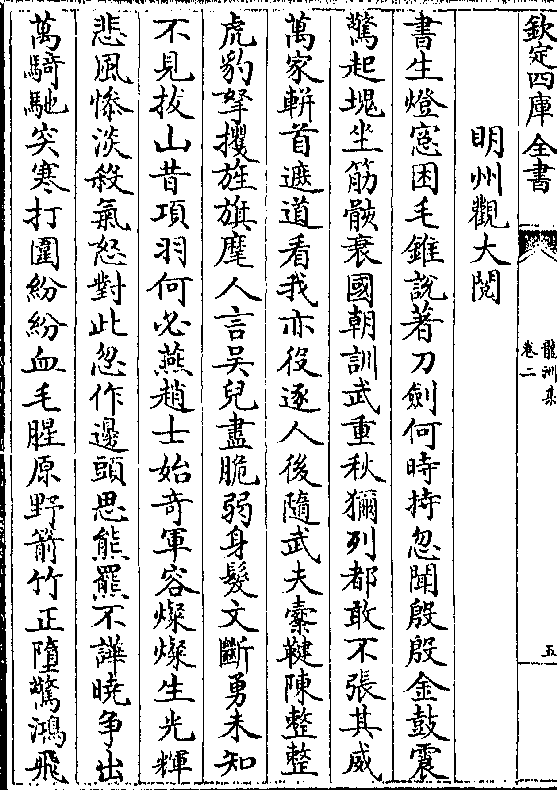 欽定四庫全書
龍洲集
卷二
五
明州觀大閱
書生燈窓困毛錐說著刀劍何時持忽聞殷殷金鼓震
驚起塊坐筋骸衰國朝訓武重秋獮列都敢不張其威
萬家輧首遮道看我亦役逐人後隨武夫櫜鞬陳整整
虎豹拏攫旌旗麾人言吳兒盡脆弱身髮文斷勇未知
不見拔山昔項羽何必燕趙士始奇軍容燦燦生光輝
悲風慘淡殺氣怒對此忽作邊頭思熊羆不譁曉争出
萬騎馳突寒打圍紛紛血毛腥原野箭竹正墮驚鴻飛